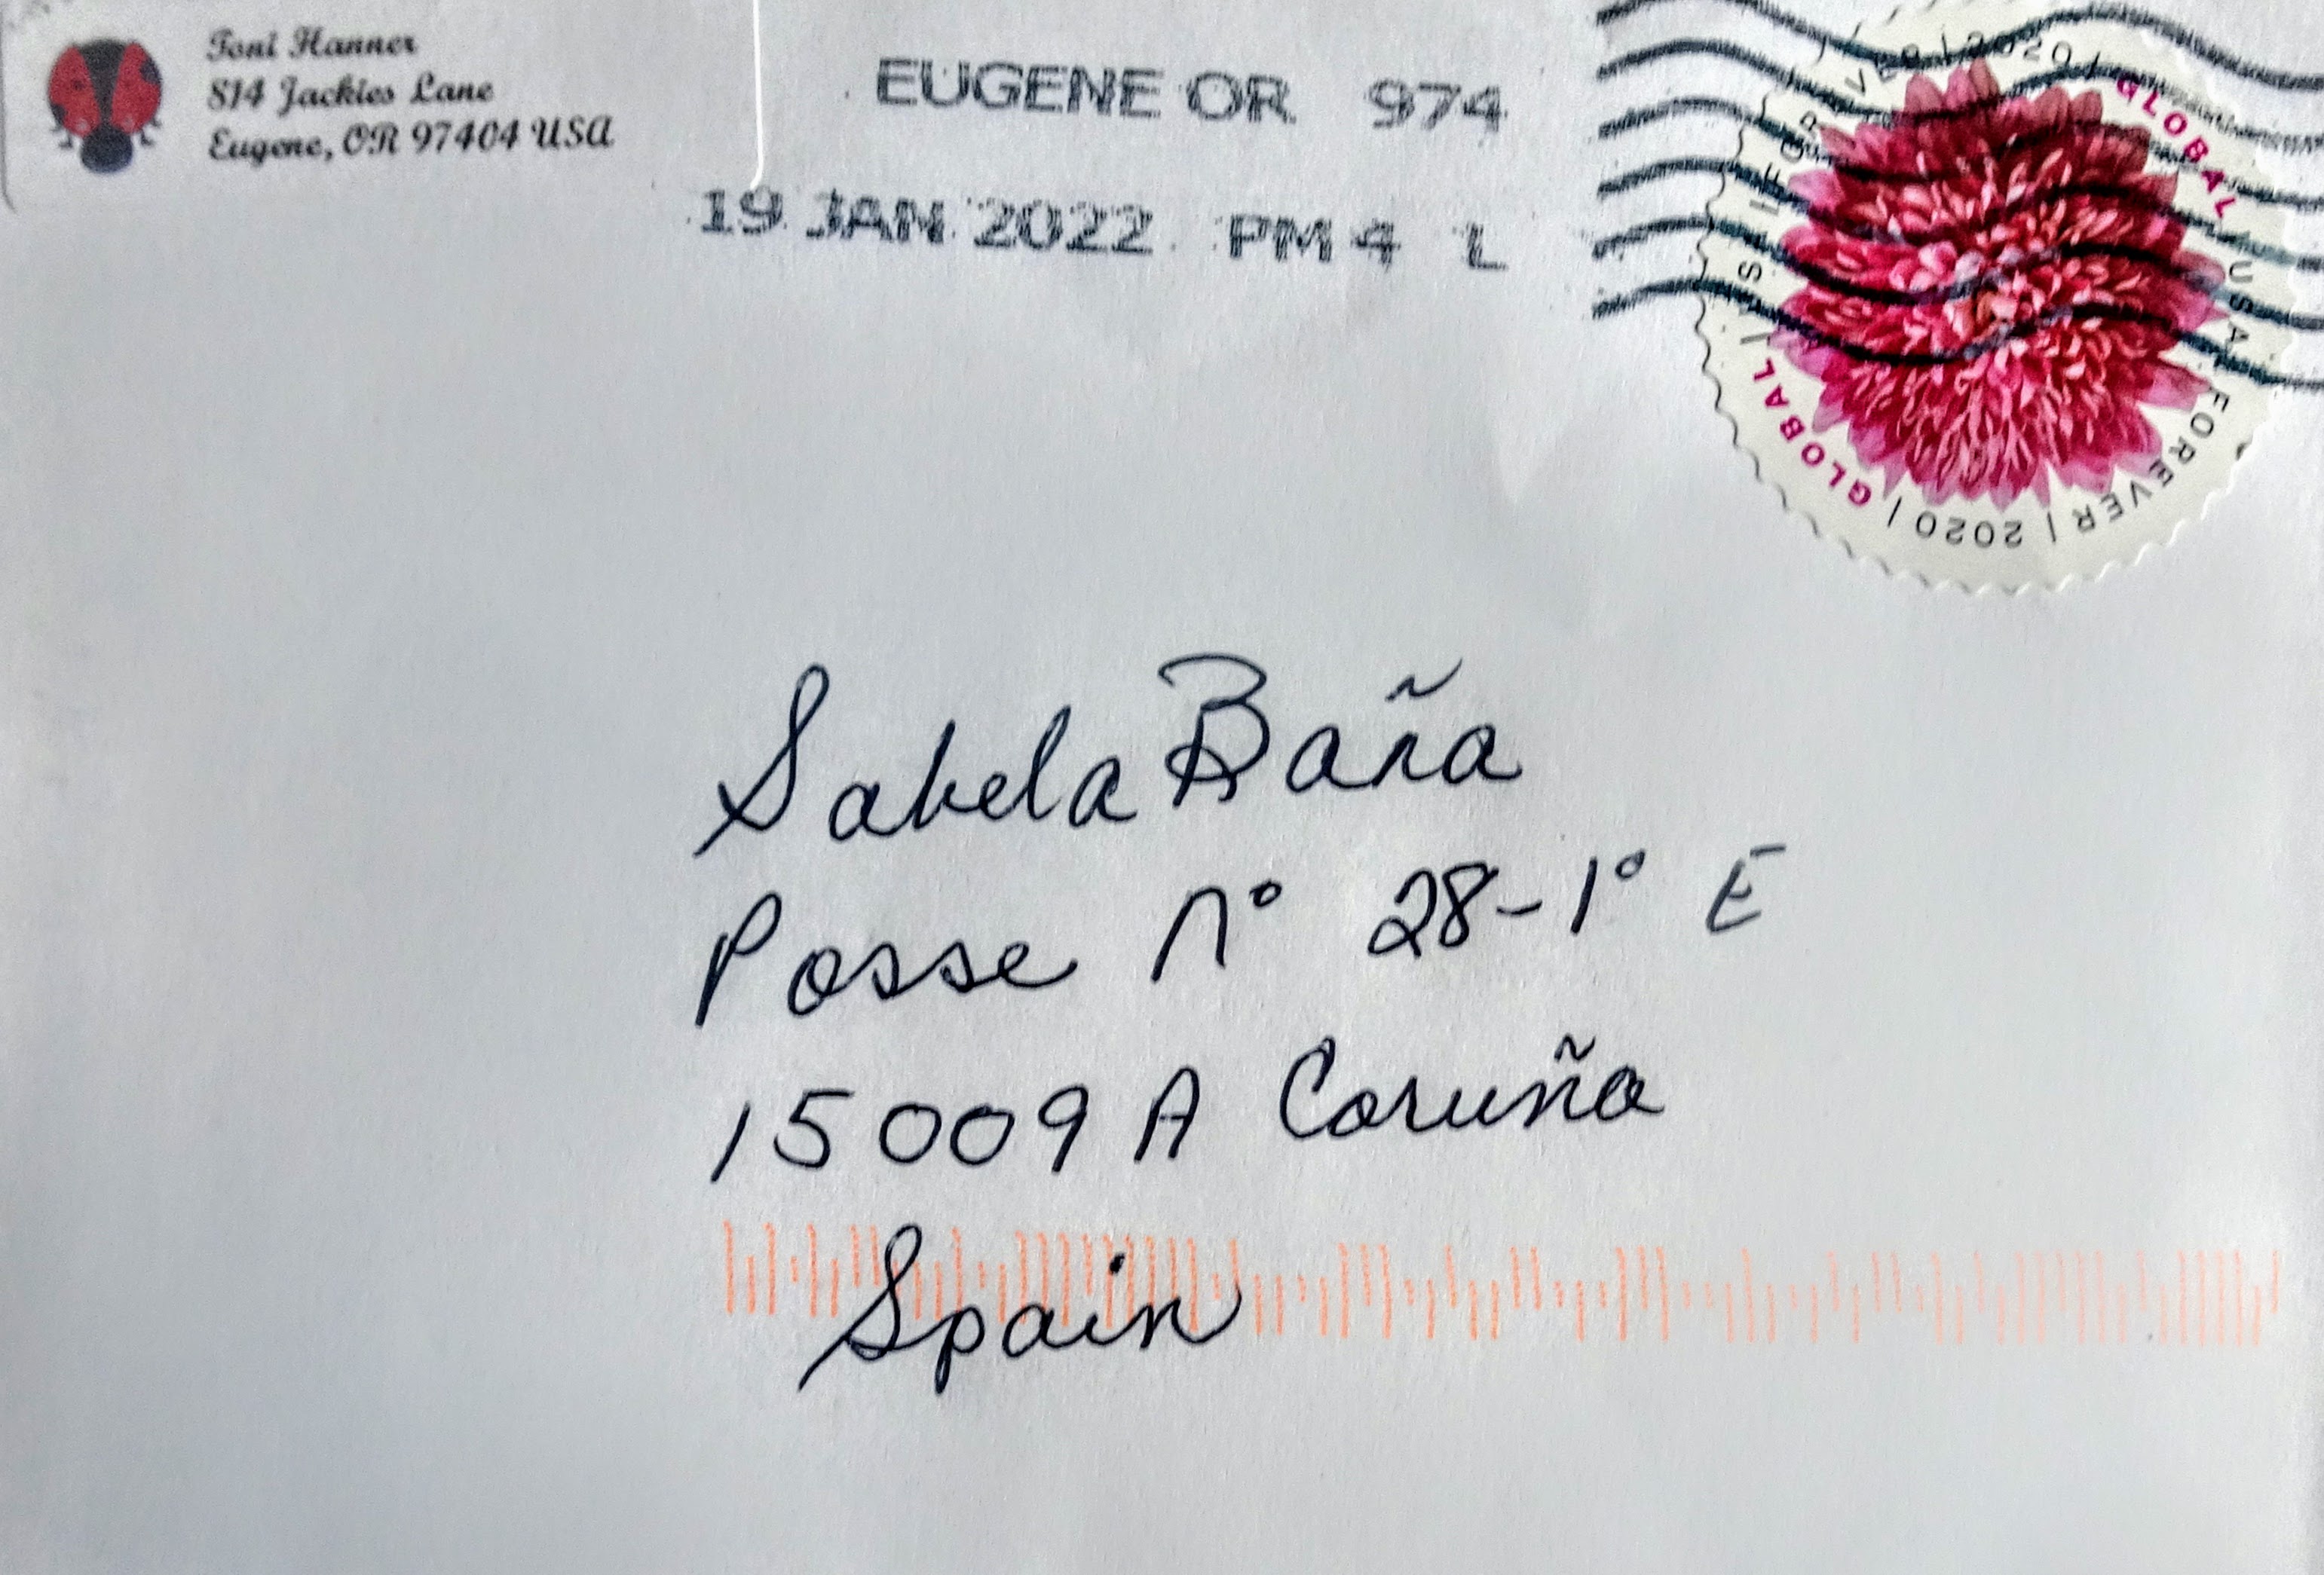 Toni Hanner
814 Jackies Lane
Eugene, OR 97404 USA
EUGENE OR 974
19 JAN 2022 PM 4 L
GLOBAL | USA FOREVER | 2020 | GLOBAL | USA FOREVER | 2020 |
Sabela Baña
Posse nº 28-1º E
15009 A Coruña
Spain